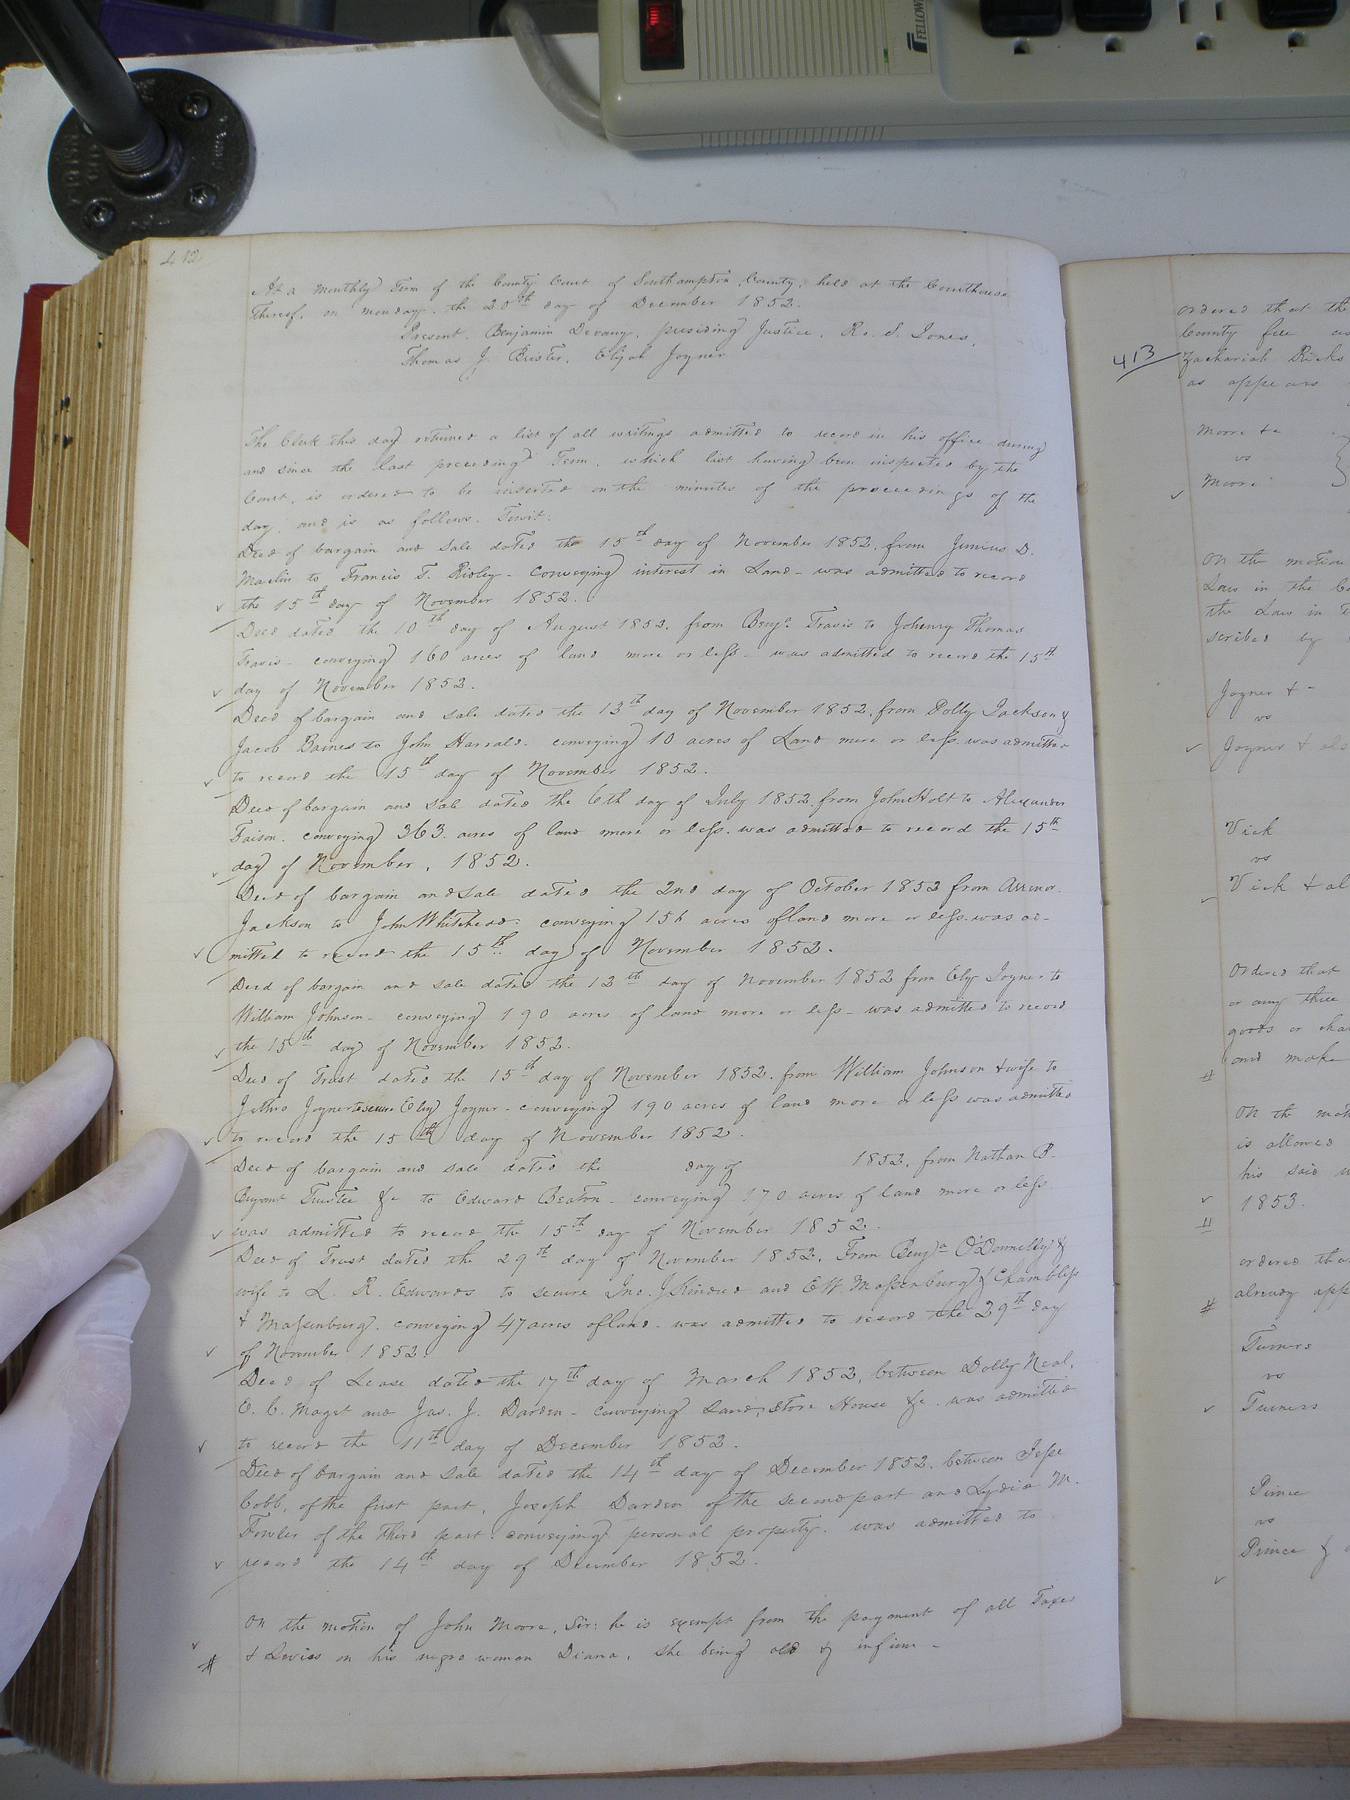 FELLOW
412
At a monthly Term of the County Court of Southampton County, held at the Courthouse
thereof, on monday, the 20th day of December 1852.
Present. Benjamin Devany, presiding Justice, Ro. S. Jones,
Thomas J. Elijah Joyner
The Clerk this day returned a list of all writings admitted to record in his office during
and since the last preceding Term, which list having been inspected by the
Court, is ordered to be inserted on the minutes of the proceedings of the
day, and is as follows. Towit:
Deed of bargain and sale dated the 15th day of November 1852, from Junius D.
to Francis T. Ridley - conveying interest in Land - was admitted to record
the 15th day of November 1852.
Deed dated the 10th day of August 1852, from Benja. Travis to Thomas
Travis - conveying 160 acres of land more or less - was admitted to record the 15th
day of November 1852.
Deed of bargain and sale dated the 13th day of November 1852, from Polly Jackson &
Jacob Barnes to John Harrald. conveying 10 acres of Land more or less. was admitted
to record the 15th day of November 1852.
Deed of bargain and sale dated the 6th day of July 1852, from John Holt to Alexander
Faison. conveying 363. acres of land more or less. was admitted to record the 15th
day of November, 1852.
Deed of bargain and sale dated the 2nd day of October 1852 from
Jackson to John Whitehead. conveying 156 acres of land more or less. was ad-
mitted to record the 15th day of November 1852.
Deed of bargain and sale dated the 12th day of November 1852 from Ely Joyner to
William Johnson - conveying 190 acres of land more or less - was admitted to record
the 15th day of November 1852.
Deed of Trust dated the 15th day of November 1852, from William Johnson & wife to
Jethro Joyner to secure Ely Joyner - conveying 190 acres of land more or less was admitted
to record the 15th day of November 1852.
Deed of bargain and sale dated the day of 1852, from Nathan B.
Bryant Trustee &c to Edward Beaton - conveying 170 acres of land more or less
was admitted to record the 15th day of November 1852.
Deed of Trust dated the 29th day of November 1852, From Benja O'Donnelly &
wife to L. R. Edwards to secure Jno. J Kindred and E W Massenburg & Chambliss
& Massenburg. conveying 47 acres of land. was admitted to record the 29th day
of November 1852.
Deed of Lease dated the 17th day of March 1852, between Dolly Neal,
C. C. Maget and Jas. J. Darden - conveying Land, Store House &c. was admitted
to record the 11th day of December 1852.
Deed of bargain and sale dated the 14th day of December 1852, between Jesse
Cobb, of the first part, Joseph Darden of the second part and Lydia M.
Fowler of the third part. conveying personal property. was admitted to
record the 14th day of December 1852.
On the motion of John Moore, Sir: he is exempt from the payment of all Taxes
# & Levies on his negro woman Diana, she being old & infirm -
ordered that the
County fee
413
Zachariah Ricks
as appears
Moore &c
vs
Moore
On the motion
Law in the
the Law in
scribed by
Joyner & -
vs
Joyner & als
Vick
vs
Vick & al
Ordered that
or any three
goods or cha
# and make
On the mot
is allowed
his said
1853.
ordered tha
# already app
Turners
vs
Turners
Prince
vs
Prince &